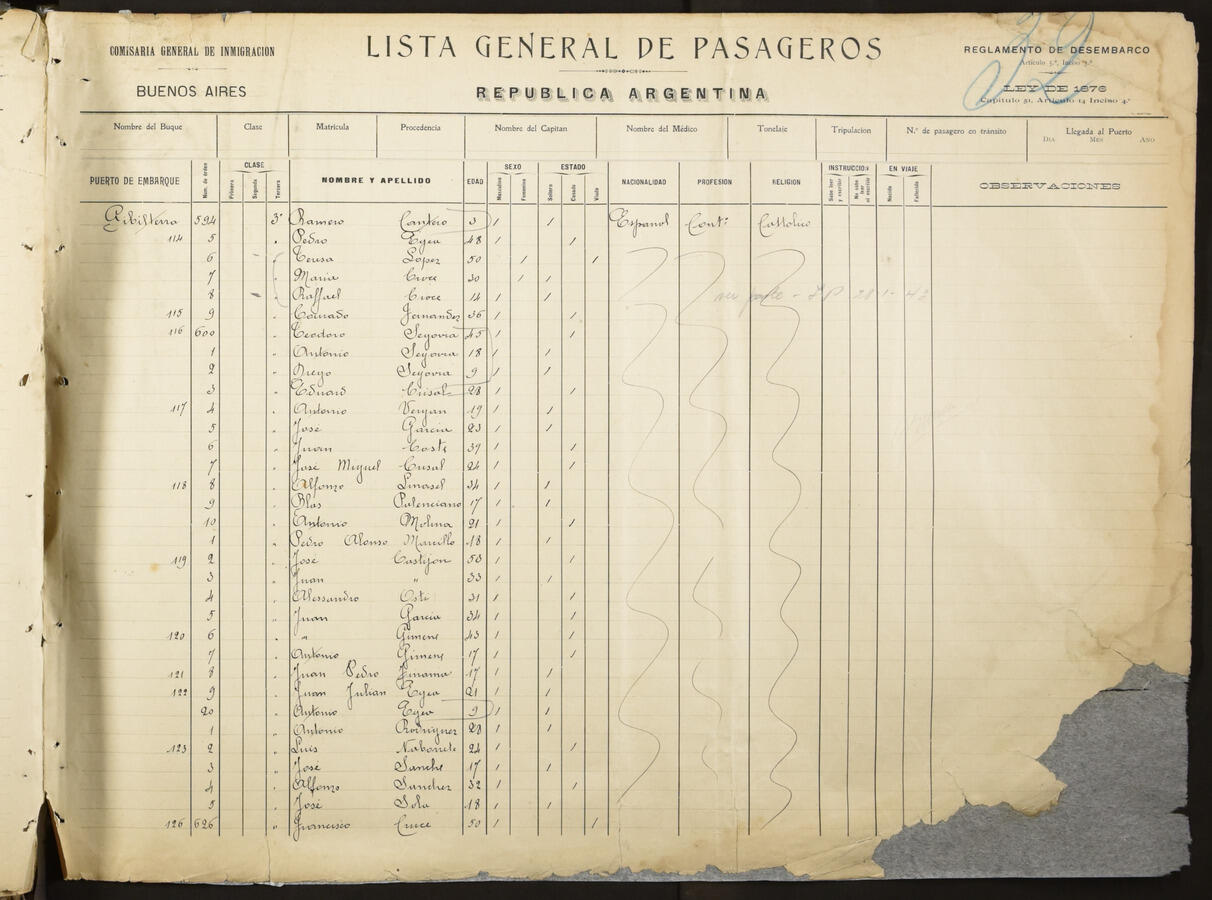 COMISARIA GENERAL DE INMIGRACION
BUENOS AIRES
LISTA GENERAL DE PASAGEROS
REPUBLICA ARGENTINA
REGLAMENTO DE DESEMBARCO
Artículo 5.º, Inciso 7.º
LEY DE 1876
Capítulo 51, Artículo 14 Inciso 4.º
22
Nombre del Buque Clase Matrícula Procedencia Nombre del Capitan Nombre del Médico Tonelaje Tripulacion N.º de pasagero en tránsito Llegada al Puerto
DIA MES AÑO
PUERTO DE EMBARQUE Núm. de órden CLASE Primera Segunda Tercera NOMBRE Y APELLIDO EDAD SEXO Masculino Femenino ESTADO Soltero Casado Viudo NACIONALIDAD PROFESION RELIGION INSTRUCCION Sabe leer y escribir No sabe leer ni escribir EN VIAJE Nacido Fallecido OBSERVACIONES
Gibilterra 594 3ª Ramero Cantero 3 / / Español Cont: Cattolico
114 5 " Pedro Egea 48 / /
6 " Teresa Lopez 50 / /
7 " Maria Croce 30 / /
8 " Raffael Croce 14 / /
115 9 " Conrado Fernandez 36 / /
116 600 " Teodoro Segovia 45 / /
1 " Antonio Segovia 18 / /
2 " Diego Segovia 9 / /
3 " Eduard 28 / /
117 4 " Antonio 19 / /
5 " José Garcia 23 / /
6 " Juan Costi 39 / /
7 " José Miguel Cusal 24 / /
118 8 " Alfonso Linasel 34 / /
9 " Blas Palenciano 17 / /
10 " Antonio Molina 21 / /
1 " Pedro Alonso Marcillo 18 / /
119 2 " José Castijon 53 / /
3 " Juan " 33 / /
4 " Alessandro Osti 31 / /
5 " Juan Garcia 34 / /
120 6 " " Gimens 43 / /
7 " Antonio Gimens 17 / /
121 8 " Juan Pedro 17 / /
122 9 " Juan Julian Egea 21 / /
20 " Antonio Egea 9 / /
1 " Antonio Rodriguez 28 / /
123 2 " Luis 24 / /
3 " José Sanche 17 / /
4 " Alfonso Sanchez 32 / /
5 " José Sola 18 / /
126 626 " Francisco Cruce 50 / /